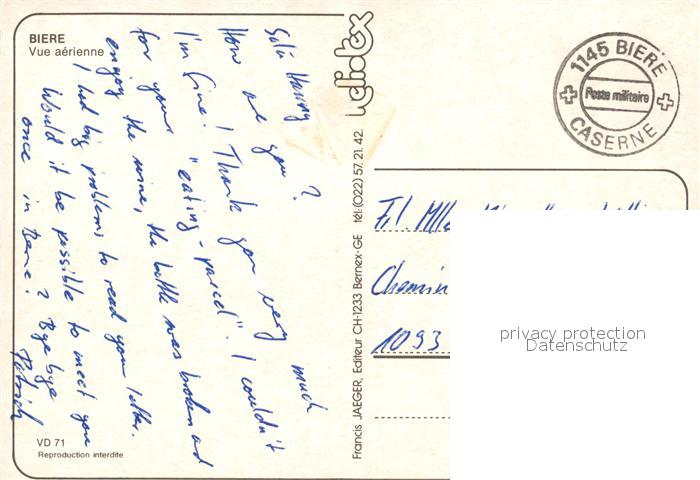 BIERE
Vue aérienne
Salü
How are you?
I'm fine! Thank you very much
for your "eating-parcel". I couldn't
enjoy the wine, the bottle was broken and
I had big problems to read your letter.
Would it be possible to meet you
once in Berne? Bye bye
Patrick
VD 71
Reproduction interdite
Francis JAEGER, Editeur CH-1233 Bernex-GE tél. (022) 57.21.42
1145 BIERE
Poste militaire
CASERNE
Chemin
1093
privacy protection
Datenschutz